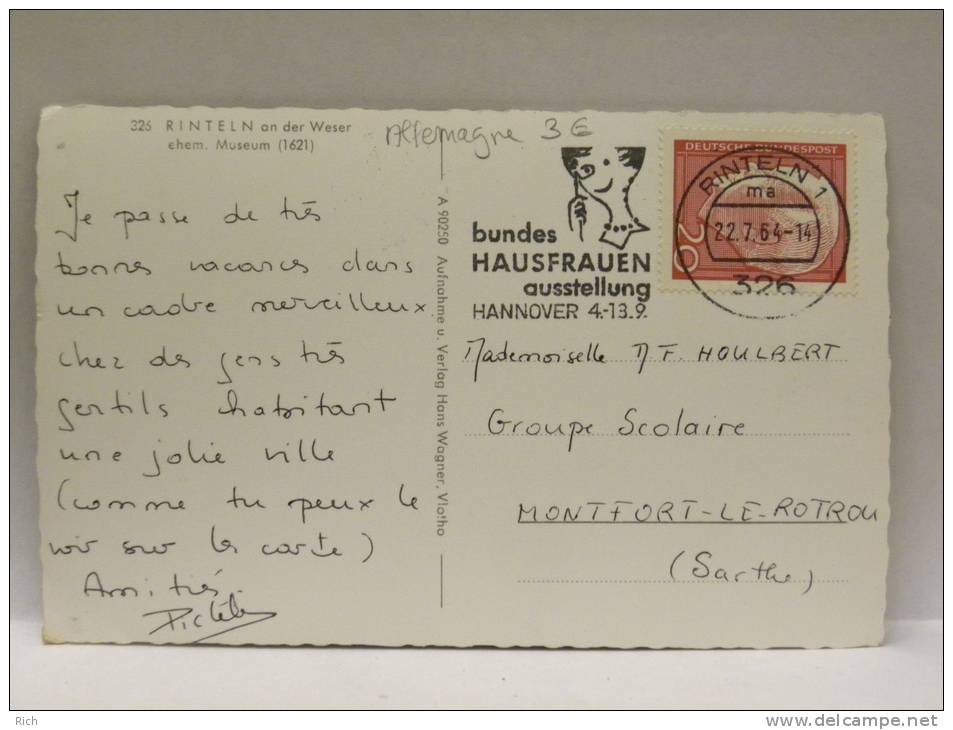 326 RINTELN an der Weser
ehem. Museum (1621)
Allemagne 3 €
Je passe de très
bonnes vacances dans
un cadre merveilleux
chez des gens très
gentils habitant
une jolie ville
(comme tu peux le
voir sur la carte)
Amitiés
A 90250 Aufnahme u. Verlag Hans Wagner, Vlotho
bundes
HAUSFRAUEN
ausstellung
HANNOVER 4.-13.9.
DEUTSCHE BUNDESPOST
20
RINTELN 1
ma
22.7.64-14
326
Mademoiselle M F. HOULBERT
Groupe Scolaire
MONTFORT-LE-ROTROU
(Sarthe)
Rich
www.delcampe.net